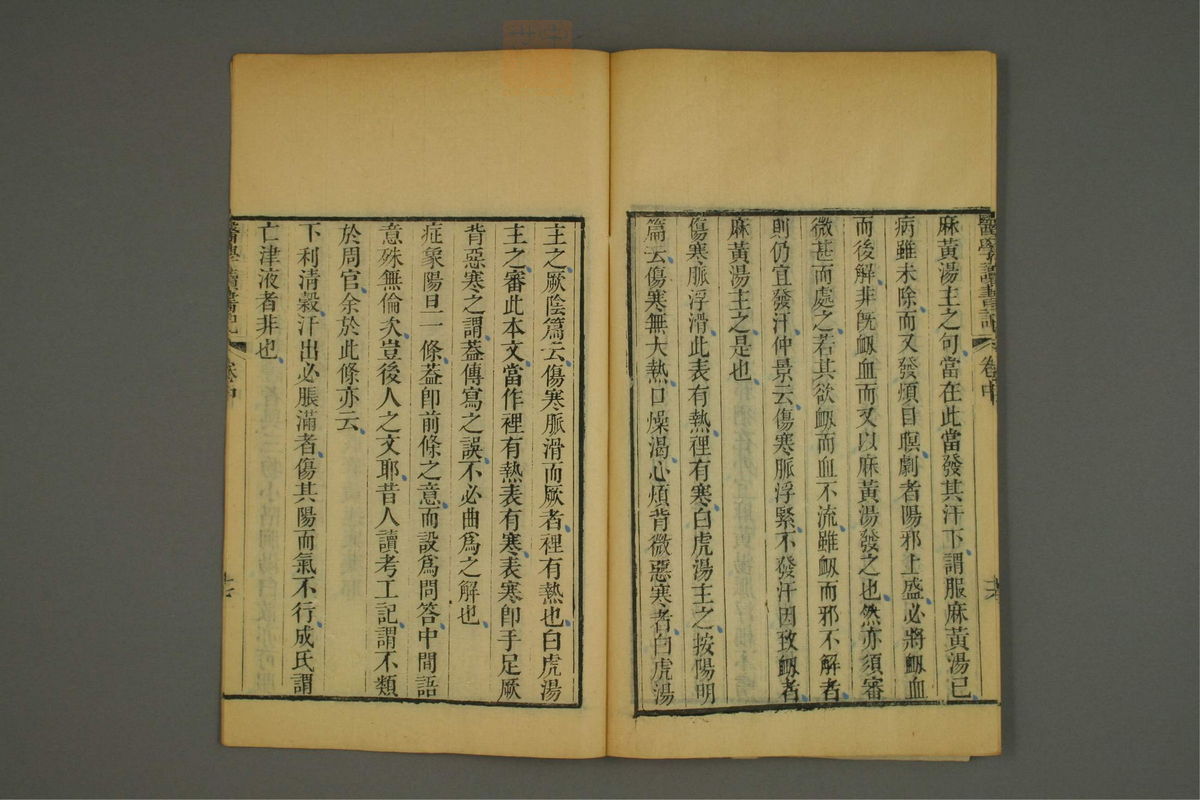 醫學讀書記 卷中
麻黃湯主之句當在此當發其汗下謂服麻黃湯已
病雖未除而又發煩目瞑劇者陽邪上盛必將衂血
而後解非旣衂血而又以麻黃湯發之也然亦須審
微甚而處之若其欲衂而血不流雖衂而邪不解者
則仍宜發汗仲景云傷寒脈浮緊不發汗因致衂者
麻黃湯主之是也
傷寒脈浮滑此表有熱裡有寒白虎湯主之按陽明
篇云傷寒無大熱口燥渴心煩背微惡寒者白虎湯
主之厥陰篇云傷寒脈滑而厥者裡有熱也白虎湯
主之審此本文當作裡有熱表有寒表寒卽手足厥
背惡寒之謂蓋傳寫之誤不必曲爲之解也
症象陽旦一條蓋卽前條之意而設爲問答中間語
意殊無倫次豈後人之文耶昔人讀考工記謂不類
於周官余於此條亦云
下利清穀汗出必脹滿者傷其陽而氣不行成氏謂
亡津液者非也
醫學讀書記 卷中